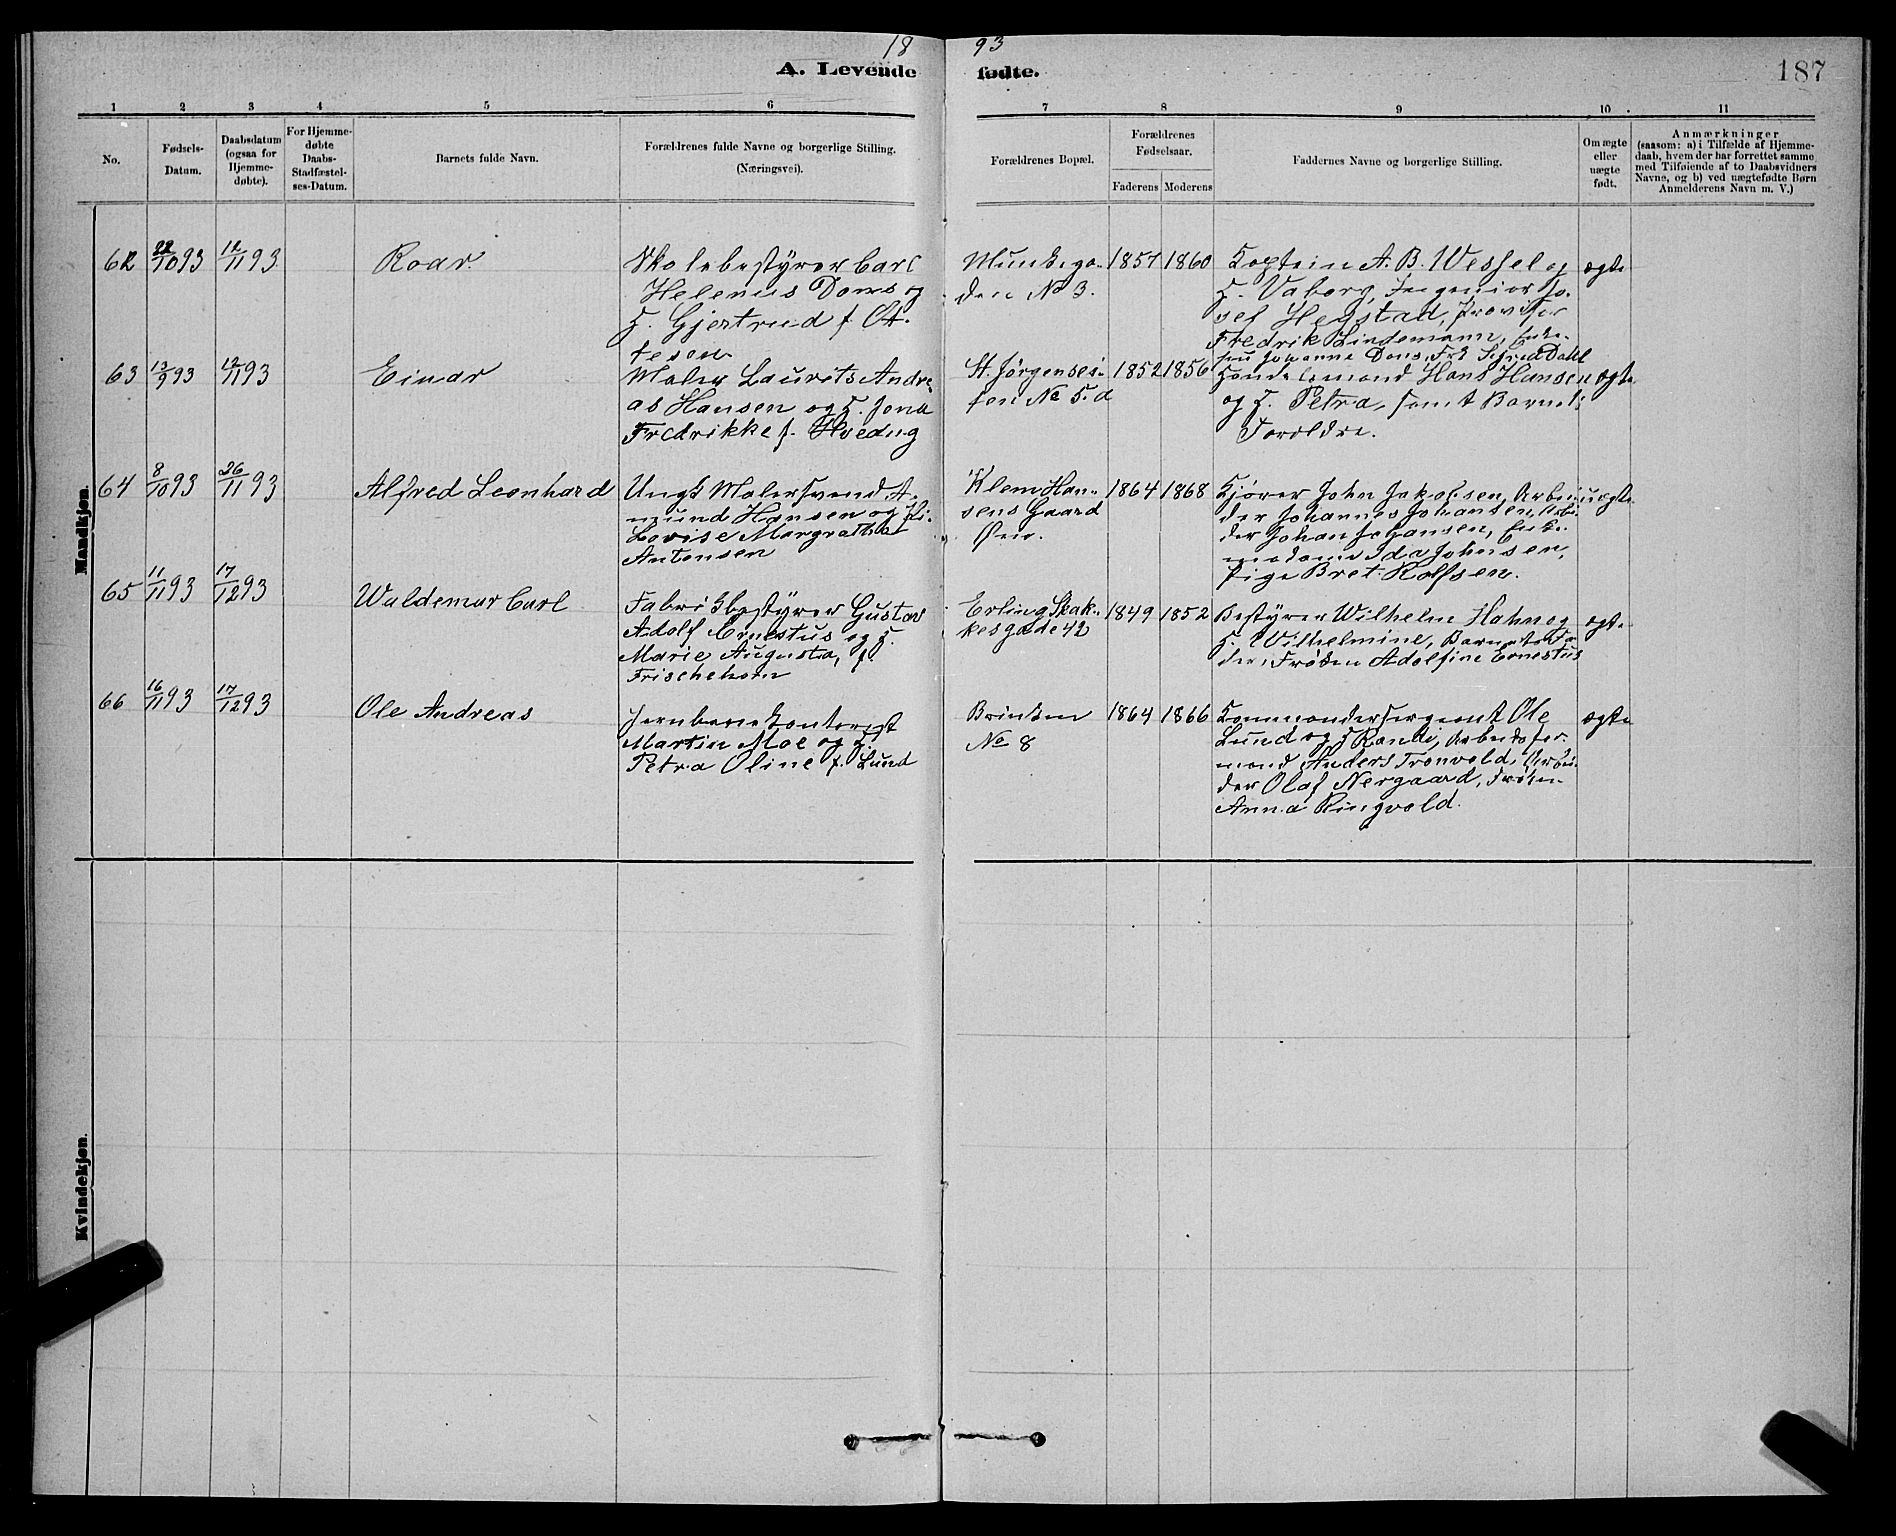 18 93
A. Levende fødte.
187
1 2 3 4 5 6 7 8 9 10 11
No.
Fødsels-Datum.
Daabsdatum (ogsaa for Hjemme-døbte).
For Hjemme-døbte Daabs-Stadfæstel-ses-Datum.
Barnets fulde Navn.
Forældrenes fulde Navne og borgerlige Stilling.
(Næringsvei).
Forældrenes Bopæl.
Forældrenes Fødselsaar.
Faderens Moderens
Faddernes Navne og borgerlige Stilling.
Om ægte eller uægte født.
Anmærkninger
(saasom: a) i Tilfælde af Hjemme-
daab, hvem der har forrettet samme
med Tilføiende af to Daabsvidners
Navne, og b) ved uægtefødte Børn
Anmelderens Navn m. V.)
Mandkjøn.
62 22/10 93 12/11 93 Roar.
Skolebestyrer Carl
Helenus Dons og
H. Gjertrud f. Ot-
tesen
Munkega-
den No 3.
1857 1860
Kaptein A. B. Wessel og
H. Vaborg, Ingeniør Jo-
sef Hegstad, Provisor
Fredrik Lindemann, Enke-
fru Johanne Dons, Frk Sigfred Dahl
ægte
63 13/9 93 12/11 93 Einar
Maler Laurits Andre
as Hansen og H. Jona
Fredrikke f. Hveding
St. Jørgensvei-
ten No 5. d
1852 1856
Handelsmand Hans Hansen
og H. Petra, samt Barnets
Foreldre.
ægte
64 8/10 93 26/11 93 Alfred Leonhard
Ungk Malersvend A-
mund Hansen og Pi.
Lovise Margrethe
Antonsen
Klem Han-
sens Gaard
Øen.
1864 1868
Kjører John Jakobsen, Arbei-
der Johannes Johansen, Arbei-
der Johan Johansen, Enke-
madame Ida Johnsen,
Pige Bret. Rolfsen.
uægte
65 11/11 93 17/12 93 Waldemar Carl
Fabrikbestyrer Gustav
Adolf Ernestus og H.
Marie Augusta, f.
Erling Skak-
kesgade 42
1849 1852
Bestyrer Wilhelm Hahn og
H. Wilhelmine, Barnets Fa-
der, Frøken Adolfine Ernestus
ægte
66 16/11 93 17/12 93 Ole Andreas
Jernbanekontorist
Martin Moe og H.
Petra Oline f. Lund
Brinken
No 8
1864 1866
Kommandersergeant Ole
Lund og H Randi, Arbeidsfor-
mand Anders Tronvold, Arbei-
der Olaf Nergaard, Frøken
Anna Ringvold.
ægte
Kvindekjøn.